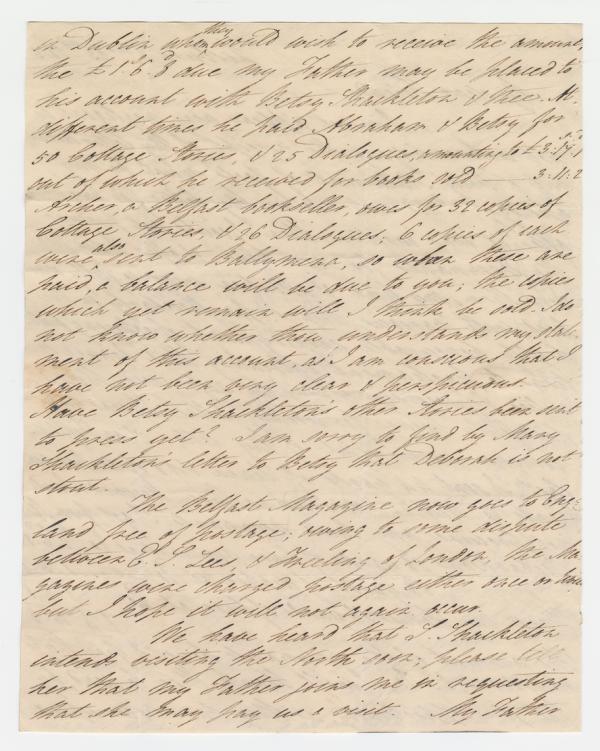 in Dublin when they would wish to receive the amount,
the £1.6.8 due my Father may be placed to
his account with Betsy Shackleton & thee. At
different times he paid Abraham & Betsy for
50 Cottage Stories, & 25 Dialogues, amounting to £3.17.1
out of which he received for books sold — 3.11.2
Archer, a Belfast bookseller, owes for 32 copies of
Cottage Stories, & 26 Dialogues; 6 copies of each
were also sent to Ballymena, so when these are
paid, a balance will be due to you; the copies
which yet remain will I think be sold. I do
not know whether thou understands my stat-
ment of this account, as I am conscious that I
have not been very clear & perspicuous.
Have Betsy Shackleton's other Stories been sent
to press yet? I am sorry to find by Mary
Shackleton's letter to Betsy that Deborah is not
stout.
The Belfast Magazine now goes to Eng-
land free of postage; owing to some dispute
between E. S. Lees, & Freeling of London, the Ma-
gazines were charged postage either once or twice
but I hope it will not again occur.
We have heard that L. Shackleton
intends visiting the North soon; please tell
her that my Father joins me in requesting
that she may pay us a visit. My Father